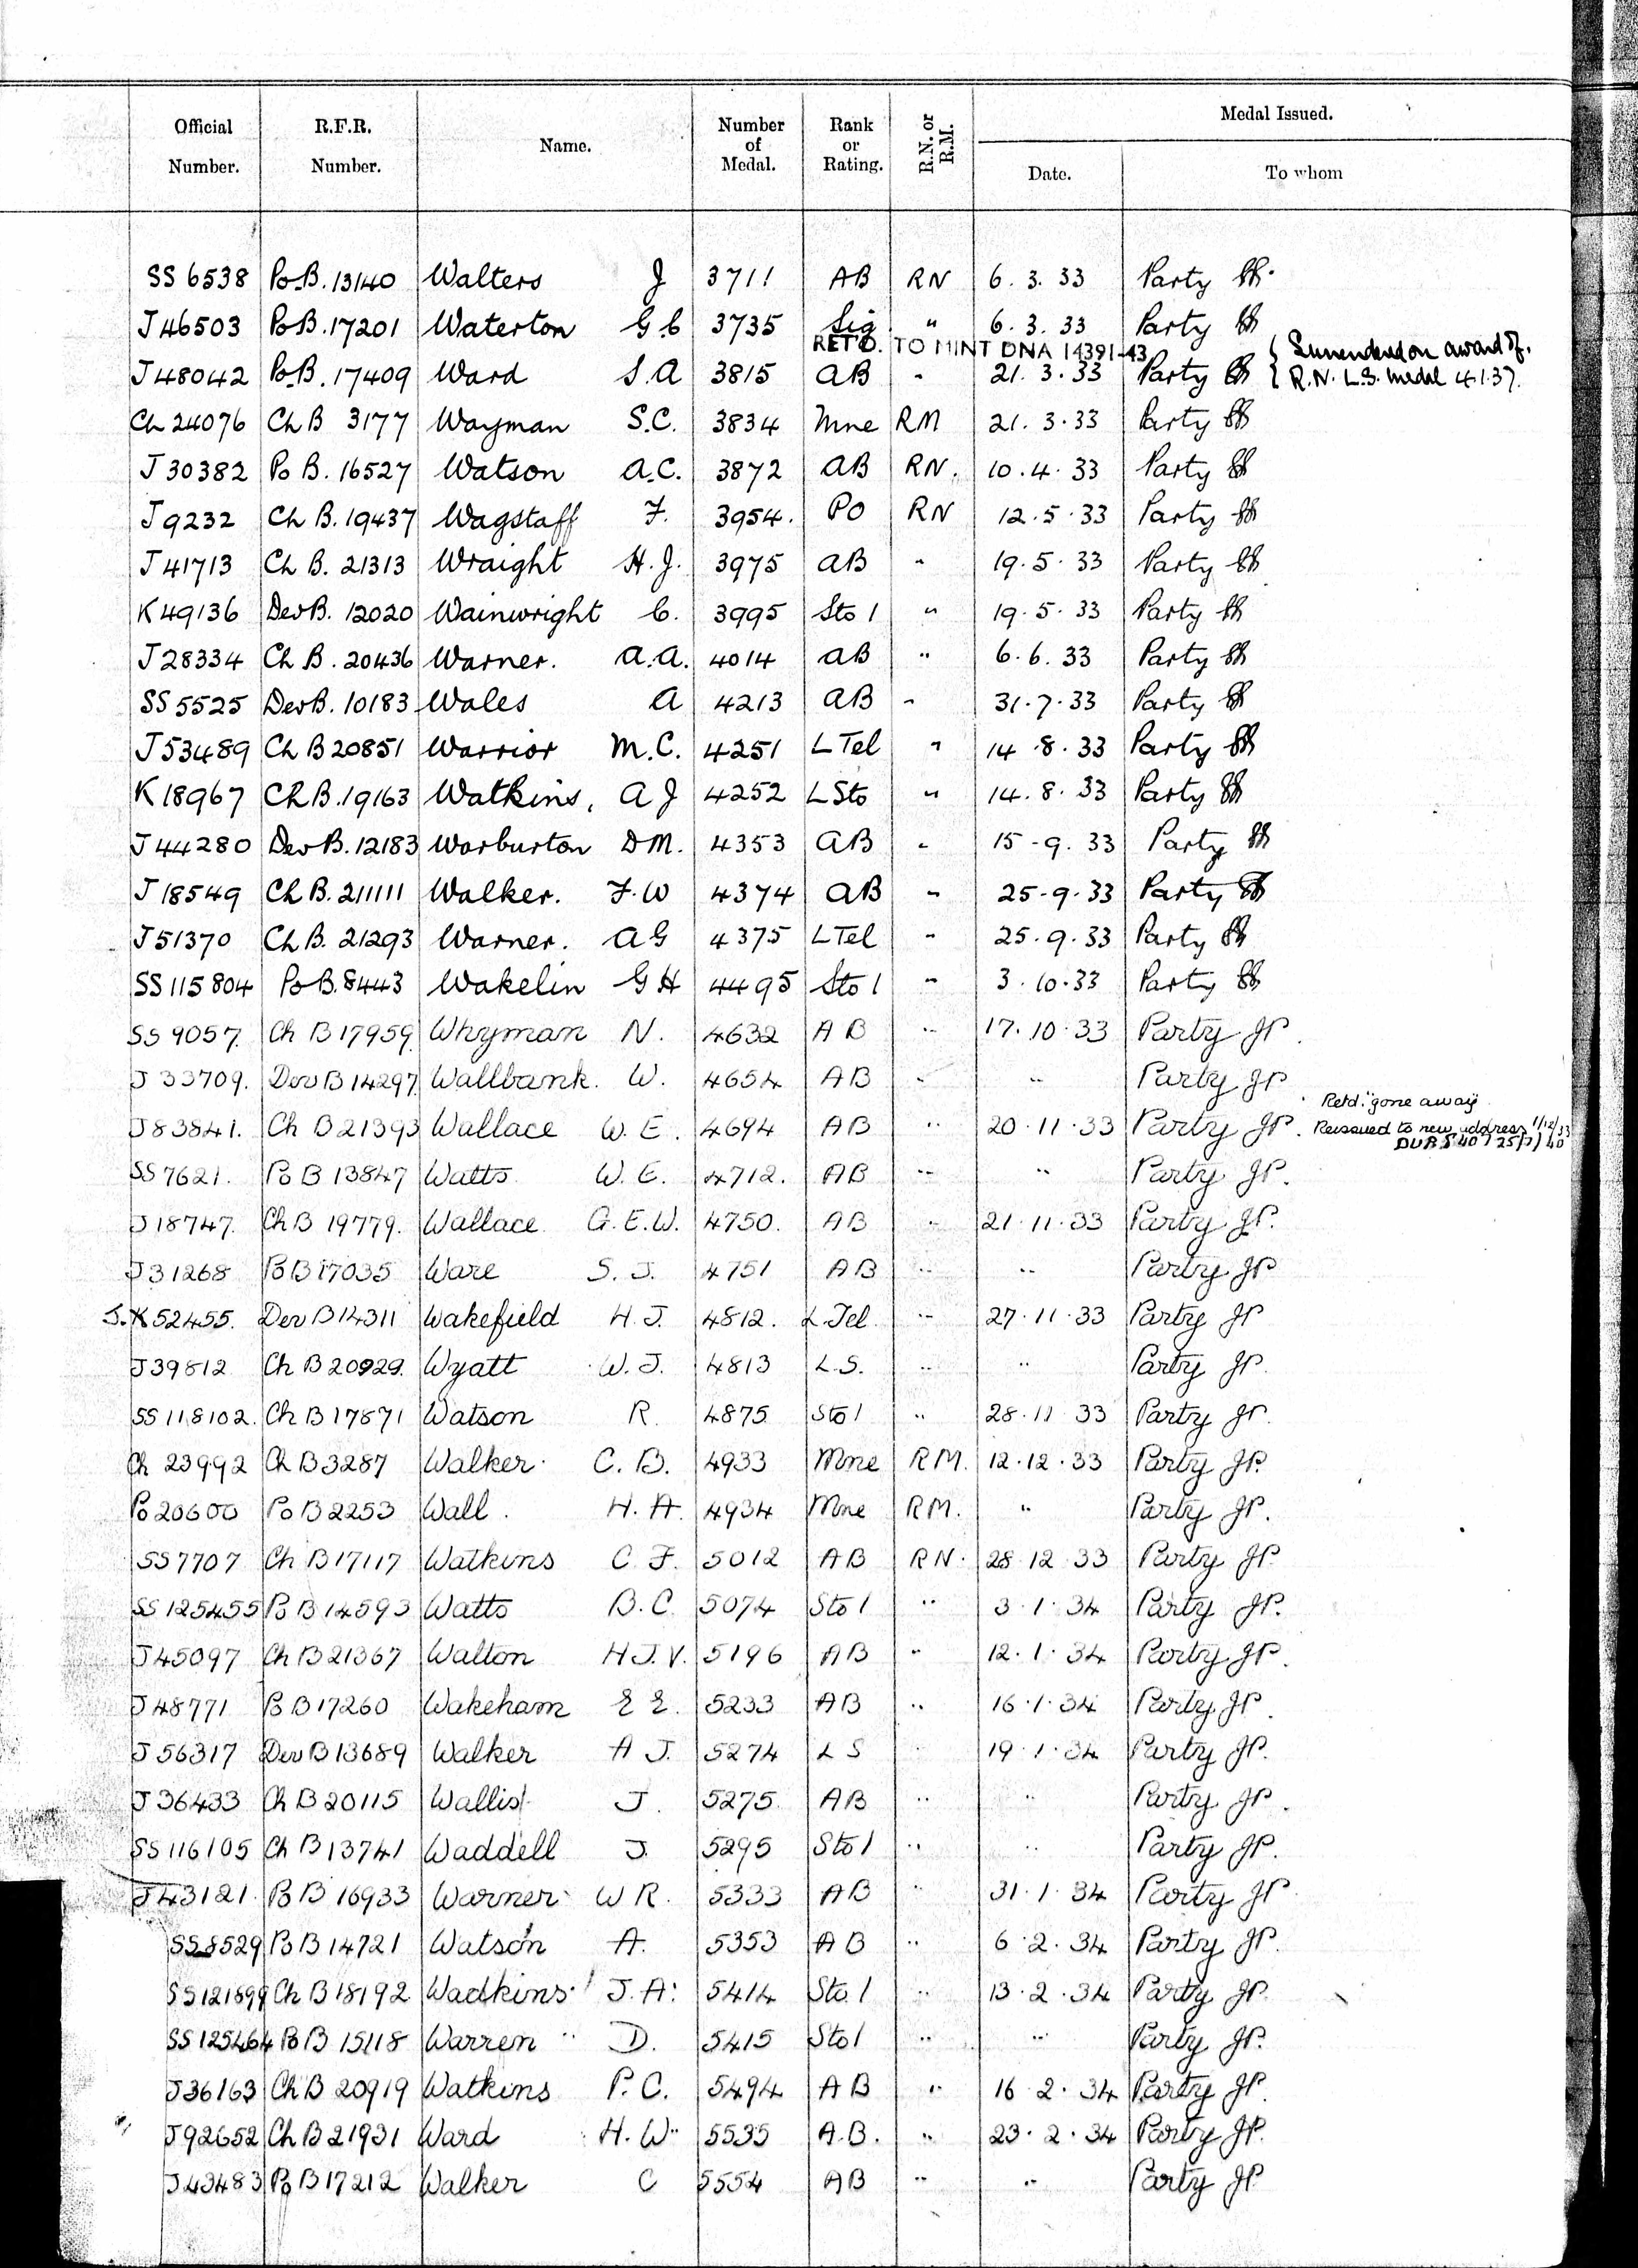 Official Number. R.F.R. Number. Name. Number of Medal. Rank or Rating. R.N. or R.M. Medal Issued. Date. To whom
SS 6538 Po B. 13140 Walters J 3711 AB RN 6. 3. 33 Party
J 46503 Po B. 17201 Waterton G C 3735 Sig " 6. 3. 33 Party
RET'D. TO MINT DNA 14391-43
J 48042 Po B. 17409 Ward S. A 3815 AB " 21. 3. 33 Party { Surrendered on award of R.N. L.S. medal 4.1.37.
Ch 24076 Ch B 3177 Wayman S.C. 3834 Mne RM 21. 3. 33 Party
J 30382 Po B. 16527 Watson A.C. 3872 AB RN. 10. 4. 33 Party
J 9232 Ch B. 19437 Wagstaff F. 3954. PO RN 12. 5. 33 Party
J 41713 Ch B. 21313 Wraight H. J. 3975 AB " 19. 5. 33 Party
K 49136 Dev B. 12020 Wainwright C. 3995 Sto 1 " 19. 5. 33 Party
J 28334 Ch B. 20436 Warner. A. A. 4014 AB " 6. 6. 33 Party
SS 5525 Dev B. 10183 Wales A 4213 AB " 31. 7. 33 Party
J 53489 Ch B 20851 Warrior M. C. 4251 L Tel " 14. 8. 33 Party
K 18967 Ch B. 19163 Watkins, A J 4252 L Sto " 14. 8. 33 Party
J 44280 Dev B. 12183 Warburton D M. 4353 AB " 15 - 9. 33 Party
J 18549 Ch B. 211111 Walker. F. W 4374 AB " 25 - 9. 33 Party
J 51370 Ch B. 21293 Warner. A G 4375 L Tel " 25. 9. 33 Party
SS 115804 Po B. 8443 Wakelin G H 4495 Sto 1 " 3. 10. 33 Party
SS 9057. Ch B 17959 Whyman N. 4632 A B " 17. 10. 33 Party JP.
J 33709. Dev B 14297 Wallbank. W. 4654 AB " " Party JP
J 83841. Ch B 21393 Wallace W. E. 4694 AB " 20. 11. 33 Party JP. Retd. "gone away" Reissued to new address 1/12/33
SS 7621. Po B 13847 Watts W. E. 4712. AB " " Party JP.
J 18747. Ch B 19779. Wallace G. E. W. 4750. AB " 21. 11. 33 Party JP.
J 31268 Po B 17035 Ware S. J. 4751 AB " " Party JP
J. K 52455. Dev B 14311 Wakefield H. J. 4812. L. Tel " 27. 11. 33 Party JP
J 39812 Ch B 20929. Wyatt W. J. 4813 L. S. " " Party JP.
SS 118102. Ch B 17871 Watson R. 4875 Sto 1 " 28. 11 33 Party JP.
Ch 23992 Ch B 3287 Walker C. B. 4933 Mne R M. 12. 12. 33 Party JP.
Po 20600 Po B 2253 Wall. H. A. 4934 Mne R M. " Party JP.
SS 7707 Ch B 17117 Watkins C. F. 5012 AB R N. 28. 12 33 Party JP.
SS 125455 Po B 14593 Watts B. C. 5074 Sto 1 " 3. 1. 34 Party JP.
J 45097 Ch B 21367 Walton H J. V. 5196 AB " 12. 1. 34 Party JP.
J 48771 Po B 17260 Wakeham E E. 5233 AB " 16. 1. 34 Party JP.
J 56317 Dev B 13689 Walker A J. 5274 L S " 19. 1. 34 Party JP.
J 36433 Ch B 20115 Wallis J. 5275. AB " " Party JP.
SS 116105 Ch B 13741 Waddell J. 5295 Sto 1 " " Party JP.
J 43121. Po B 16933 Warner W R. 5333 AB " 31. 1. 34 Party JP.
SS 8529 Po B 14721 Watson A. 5353 AB " 6. 2. 34 Party JP.
SS 121899 Ch B 18192 Wadkins J. A. 5414 Sto. 1 " 13. 2. 34 Party JP.
SS 125464 Po B 15118 Warren D. 5415 Sto 1 " " Party JP.
J 36163 Ch B 20919 Watkins P. C. 5494 AB " 16. 2. 34 Party JP.
J 92652 Ch B 21931 Ward H. W. 5535 A. B. " 23. 2. 34 Party JP.
J 43483 Po B 17212 Walker C 5554 AB " " Party JP